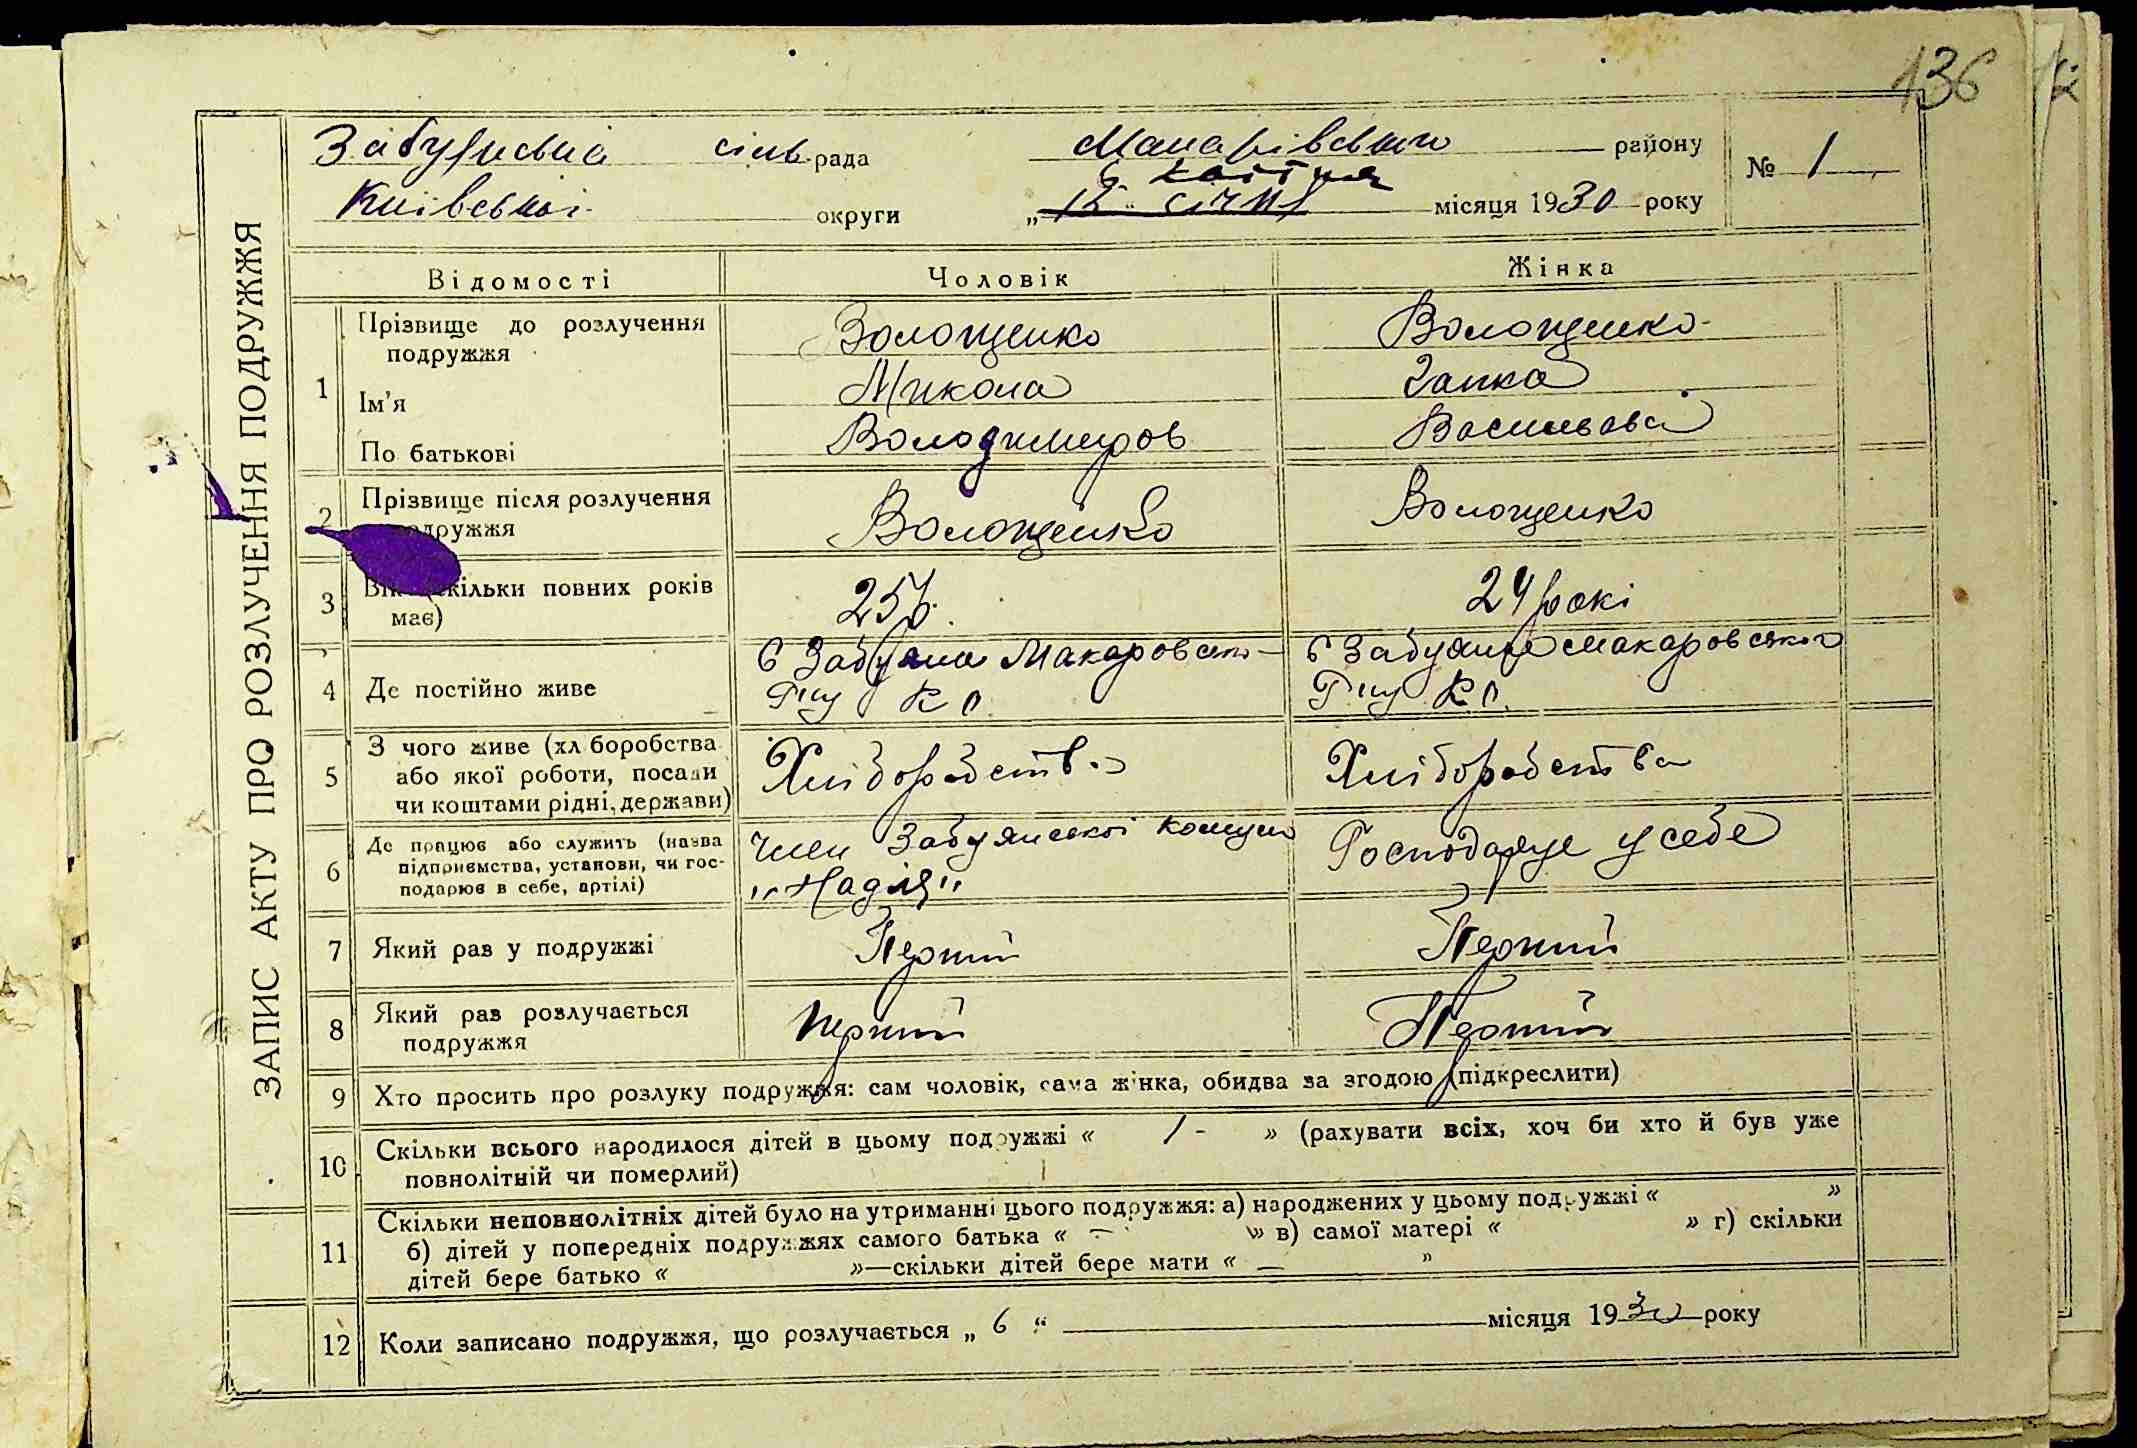 136
ЗАПИС АКТУ ПРО РОЗЛУЧЕННЯ ПОДРУЖЖЯ
Забуянська сіль рада Макарівського району № 1
6 квітня
Київської округи „12“ січня місяця 1930 року
Відомості Чоловік Жінка
1 Прізвище до розлучення подружжя Волощенко Волощенко
Ім'я Микола Ганка
По батькові Володимиров Васильова
2 Прізвище після розлучення подружжя Волощенко Волощенко
3 Вік (скільки повних років має) 25 р. 24 рокі
4 Де постійно живе с Забуяна Макаровсько- с Забуяння Макаровського
Р-ну К О. Р-ну К О.
5 З чого живе (хліборобства або якої роботи, посади чи коштами рідні, держави) Хліборобств. Хліборобства
6 Де працює або служить (назва підприємства, установи, чи господарює в себе, артілі) Член Забуянської комун Господарує у себе
„Надія"
7 Який раз у подружжі Перший Перший
8 Який раз розлучається подружжя Перший Перший
9 Хто просить про розлуку подружжя: сам чоловік, сама жінка, обидва за згодою (підкреслити)
10 Скільки всього народилося дітей в цьому подружжі « 1 - » (рахувати всіх, хоч би хто й був уже
повнолітній чи померлий)
11 Скільки неповнолітніх дітей було на утриманні цього подружжя: а) народжених у цьому подружжі « »
б) дітей у попередніх подружжях самого батька « — » в) самої матері « » г) скільки
дітей бере батько « »—скільки дітей бере мати « — »
12 Коли записано подружжя, що розлучається „ 6 “ місяця 1930 року